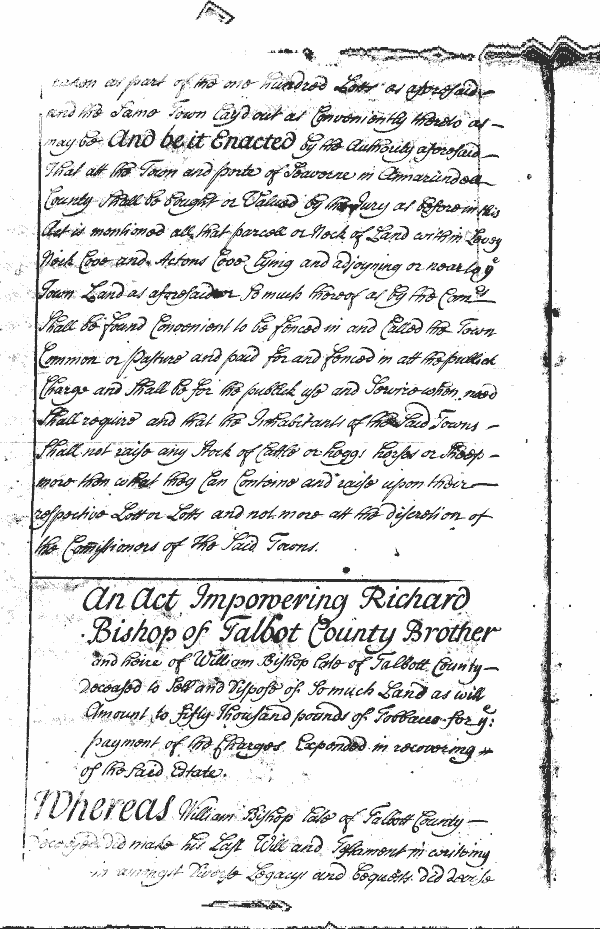 taken as part of the one hundred Lotts as aforesaid
and the Same Town Layd out as Conveniently thereto as
may be And be it Enacted by the Authority aforesaid
That att the Town and porte of in Annarundell
County Shall be bought or Valued by the Jury as before in this
Act is mentioned all that parcell or Neck of Land within Levey
Neck Cove and Actons Cove Lying and adjoyning or near to ye
Town Land as aforesaid or so much thereof as by the Comrs
Shall be found Convenient to be fenced in and Called the Town
Common or Pasture and paid for and fenced in att the publick
Charge and Shall be for the publick use and Service when need
Shall require and that the Inhabitants of the Said Towns
Shall not raise any Stock of Cattle or hoggs horses or Sheep
more then what they Can Conteine and raise upon their
respective Lott or Lotts and not more att the discretion of
the Comissioners of the Said Towns.
An Act Impowering Richard
Bishop of Talbot County Brother
and heire of William Bishop late of Talbott County
deceased to Sell and dispose of So much Land as will
Amount to fifty thousand pounds of Tobbacco for ye:
payment of the Charges Expended in recovering
of the Said Estate.
Whereas William Bishop late of Talbott County
deceased did make his Last Will and Testament in writeing
in amongst Diverse Legacys and bequests did devise